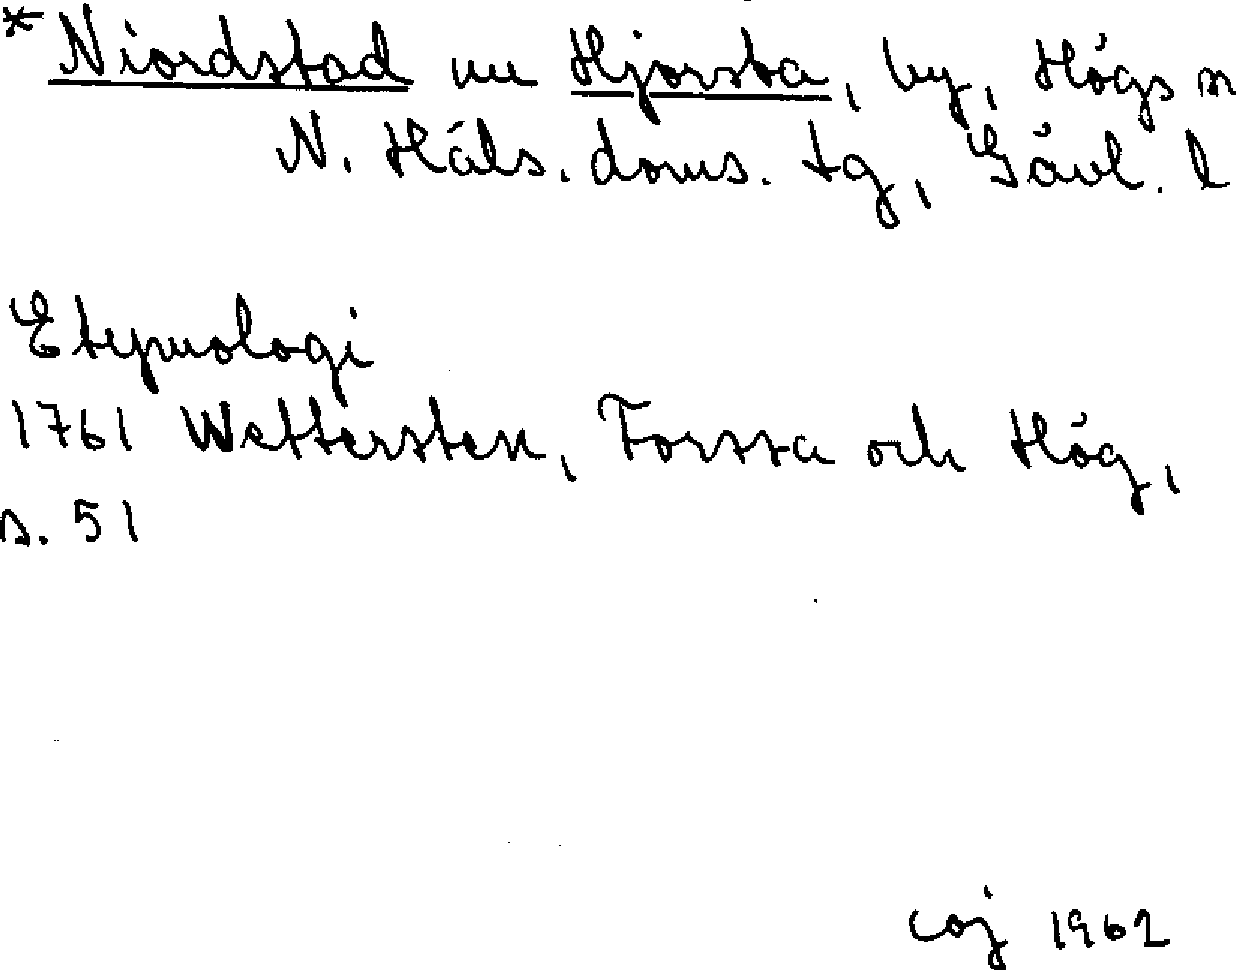 *Niordstad nu Hjorsta, by, Högs sn
N. Häls. doms. tg, Gävl. l
Etymologi
1761 Wettersten, Forssa och Hög,
s. 51
coj 1962